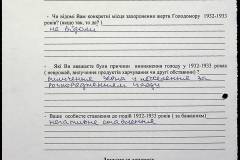 - Чи відомі Вам конкретні місця захоронення жертв Голодомору 1932-1933
років? (якщо так, то де?)
не відомі
- Які Ви вважаєте були причини виникнення голоду у 1932-1933 роках
( неврожай, вилучення продуктів харчування чи другі обставини?)
вилучення зерна у населення за
розпорядженням уряду
- Ваше особисте ставлення до подій 1932-1933 років ( за бажанням)
негативне ставлення